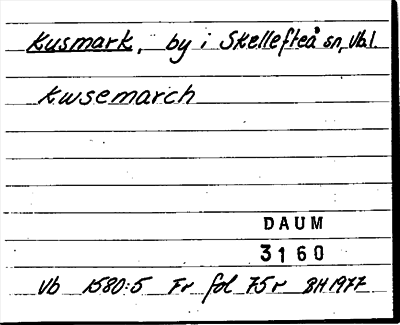 Kusmark, by i Skellefteå sn, Vb.l.
Kwsemarch
DAUM
3160
Vb 1580:5 Fr fol 75r BH 1977